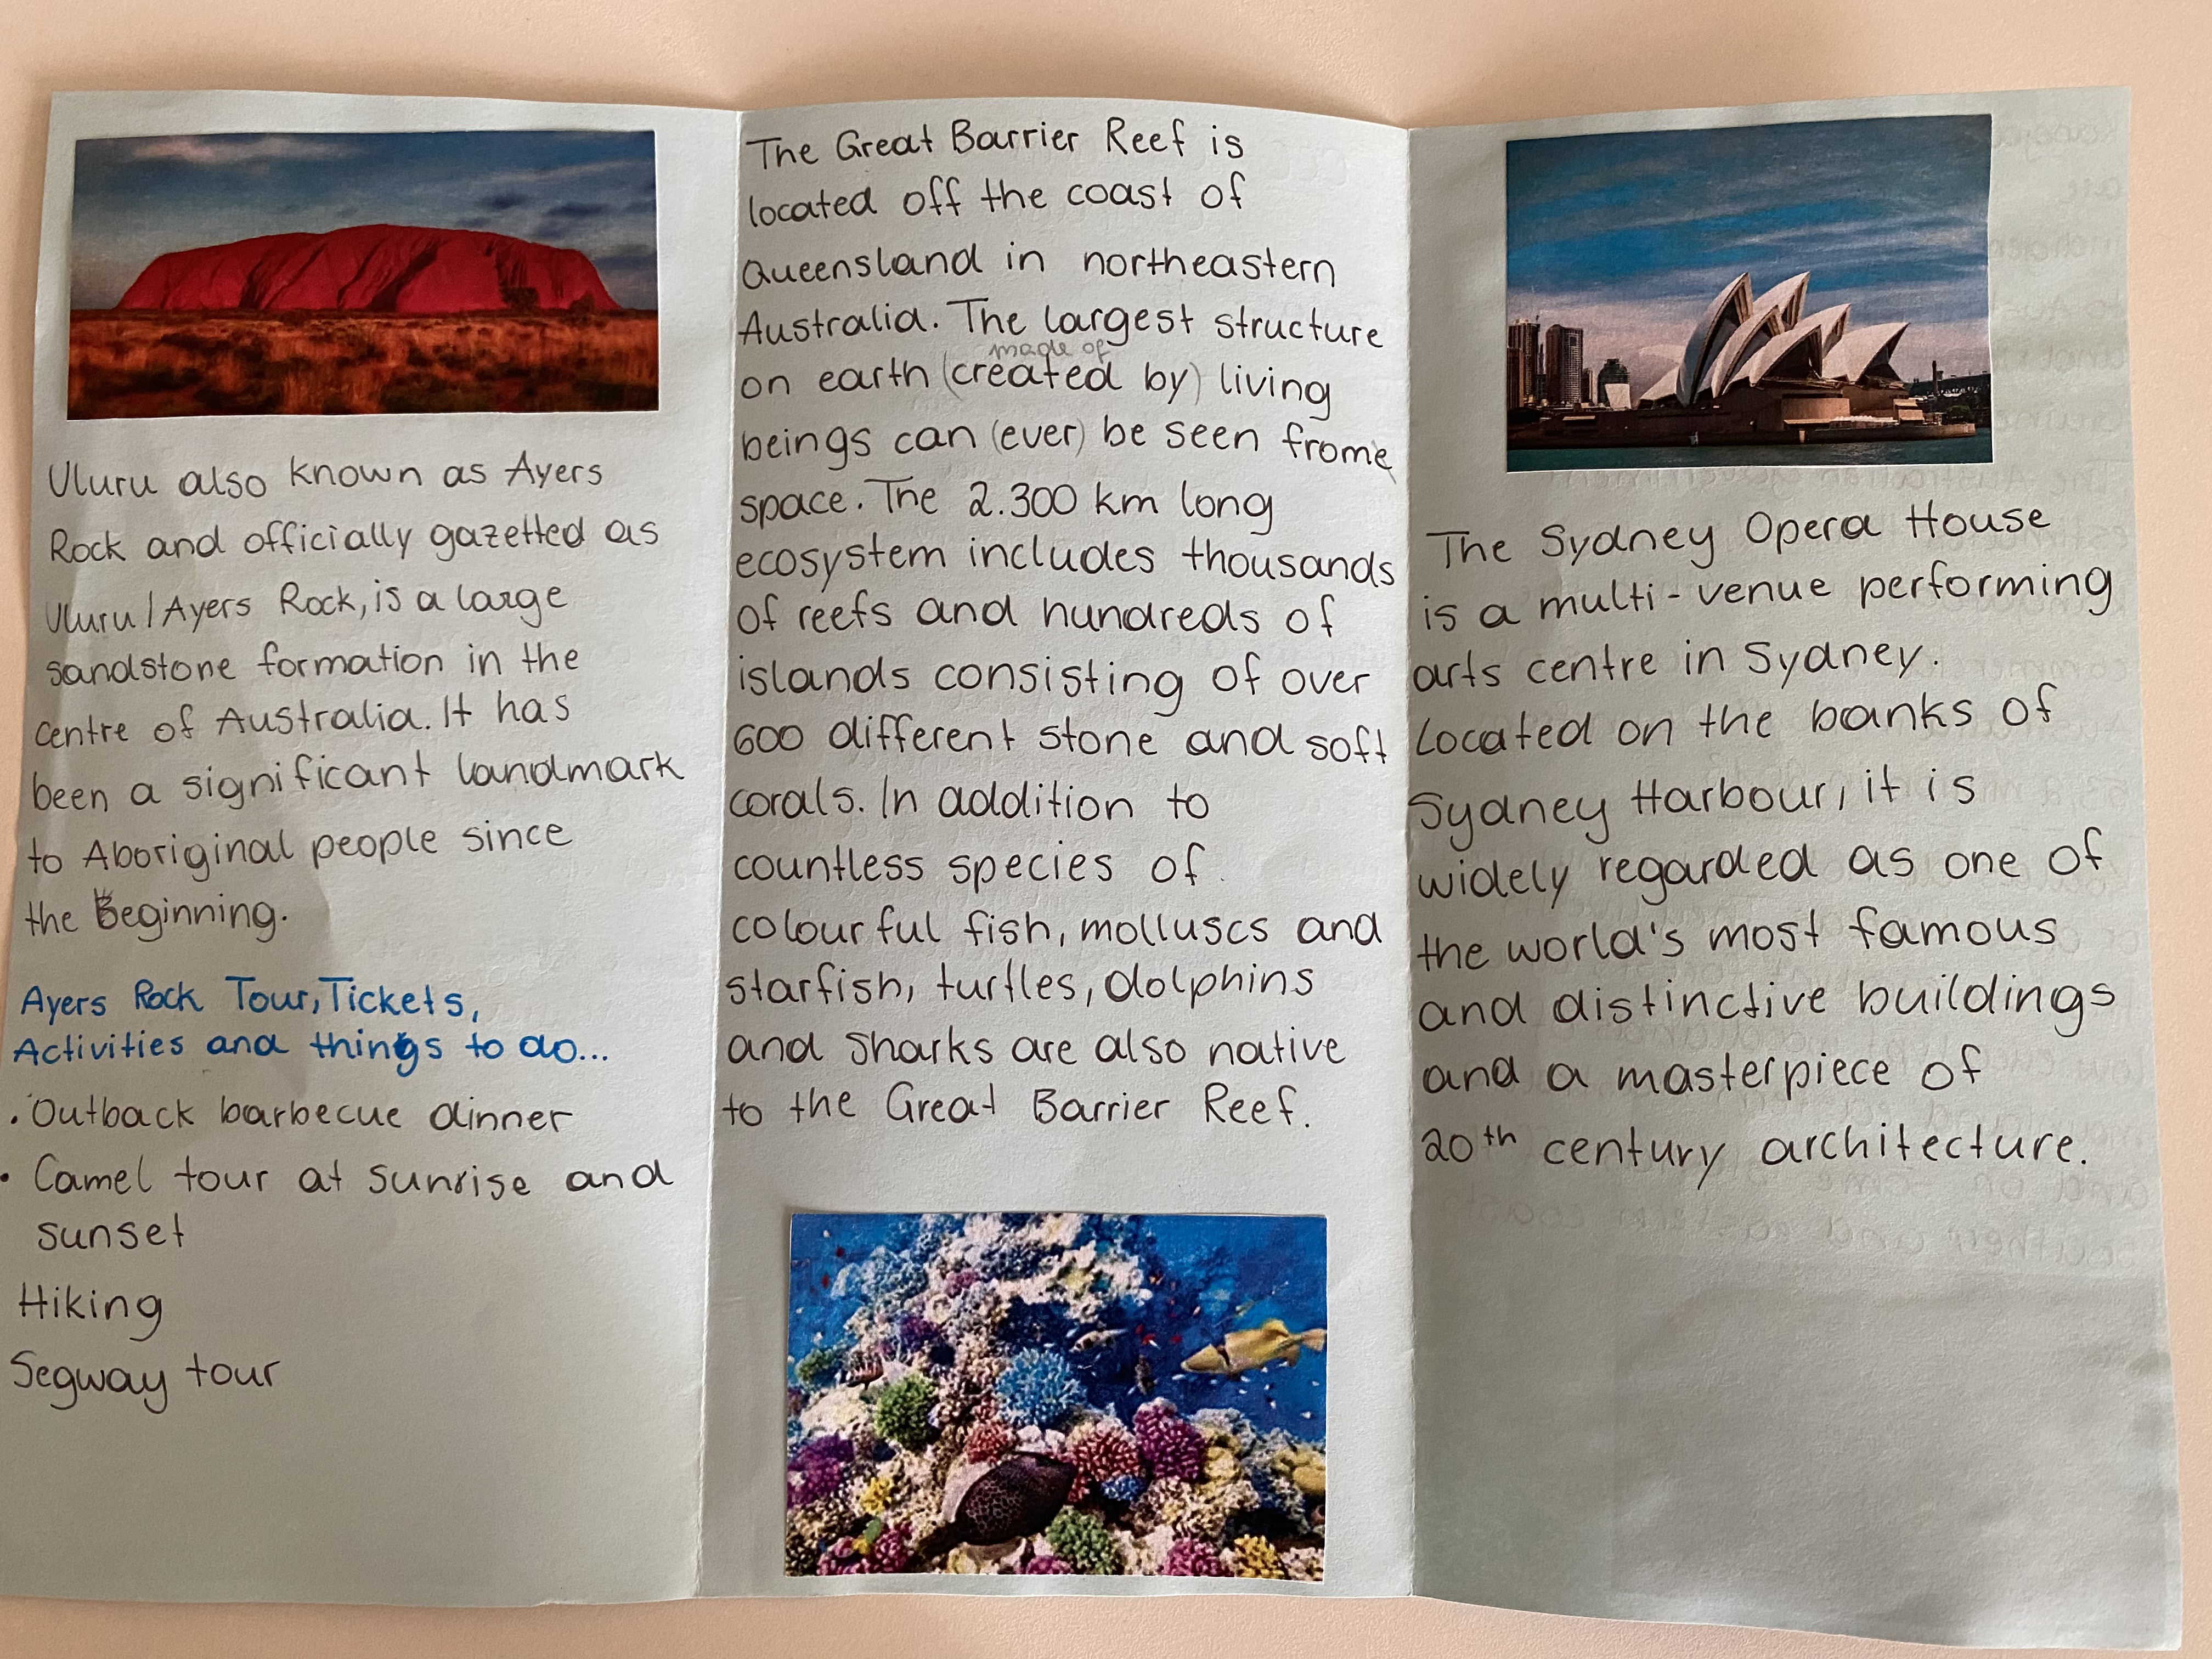 Uluru also known as Ayers
Rock and officially gazetted as
Uluru/Ayers Rock, is a large
sandstone formation in the
centre of Australia. It has
been a significant landmark
to Aboriginal people since
the Beginning.
Ayers Rock Tour, Tickets,
Activities and things to do...
• Outback barbecue dinner
• Camel tour at sunrise and
sunset
Hiking
Segway tour
The Great Barrier Reef is
located off the coast of
Queensland in northeastern
Australia. The largest structure
made of
on earth (created by) living
beings can (ever) be seen frome
space. The 2.300 km long
ecosystem includes thousands
of reefs and hundreds of
islands consisting of over
600 different stone and soft
corals. In addition to
countless species of
colourful fish, molluscs and
starfish, turtles, dolphins
and sharks are also native
to the Great Barrier Reef.
The Sydney Opera House
is a multi-venue performing
arts centre in Sydney.
Located on the banks of
Sydney Harbour, it is
widely regarded as one of
the world's most famous
and distinctive buildings
and a masterpiece of
20th century architecture.